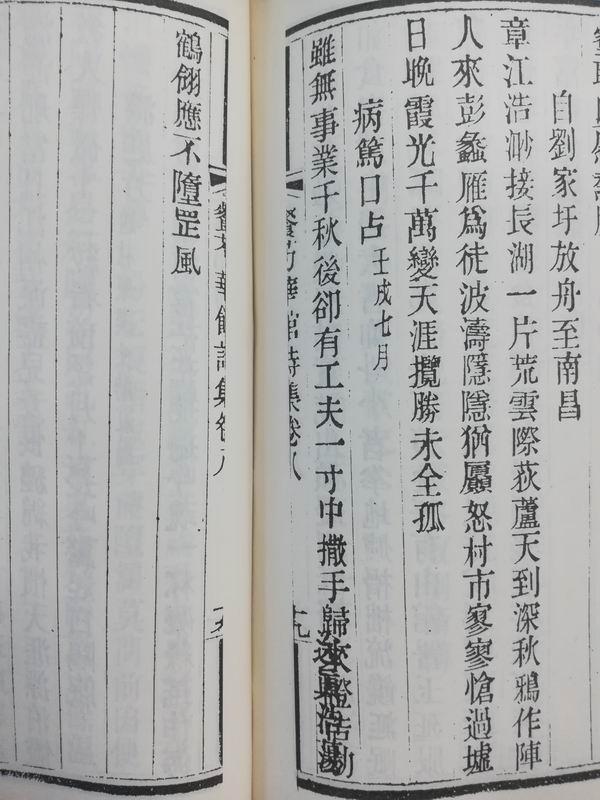 自劉家圩放舟至南昌
章江浩渺接長湖一片荒雲際荻蘆天到深秋鴉作陣
人來彭蠡雁爲徒波濤隱隱猶贔怒村市寥寥愴過墟
日晚霞光千萬變天涯攬勝未全孤
病篤口占壬戌七月
雖無事業千秋後卻有工夫一寸中撒手歸
華館詩集卷八 十九
華館詩集卷八
鶴翎應不墮罡風